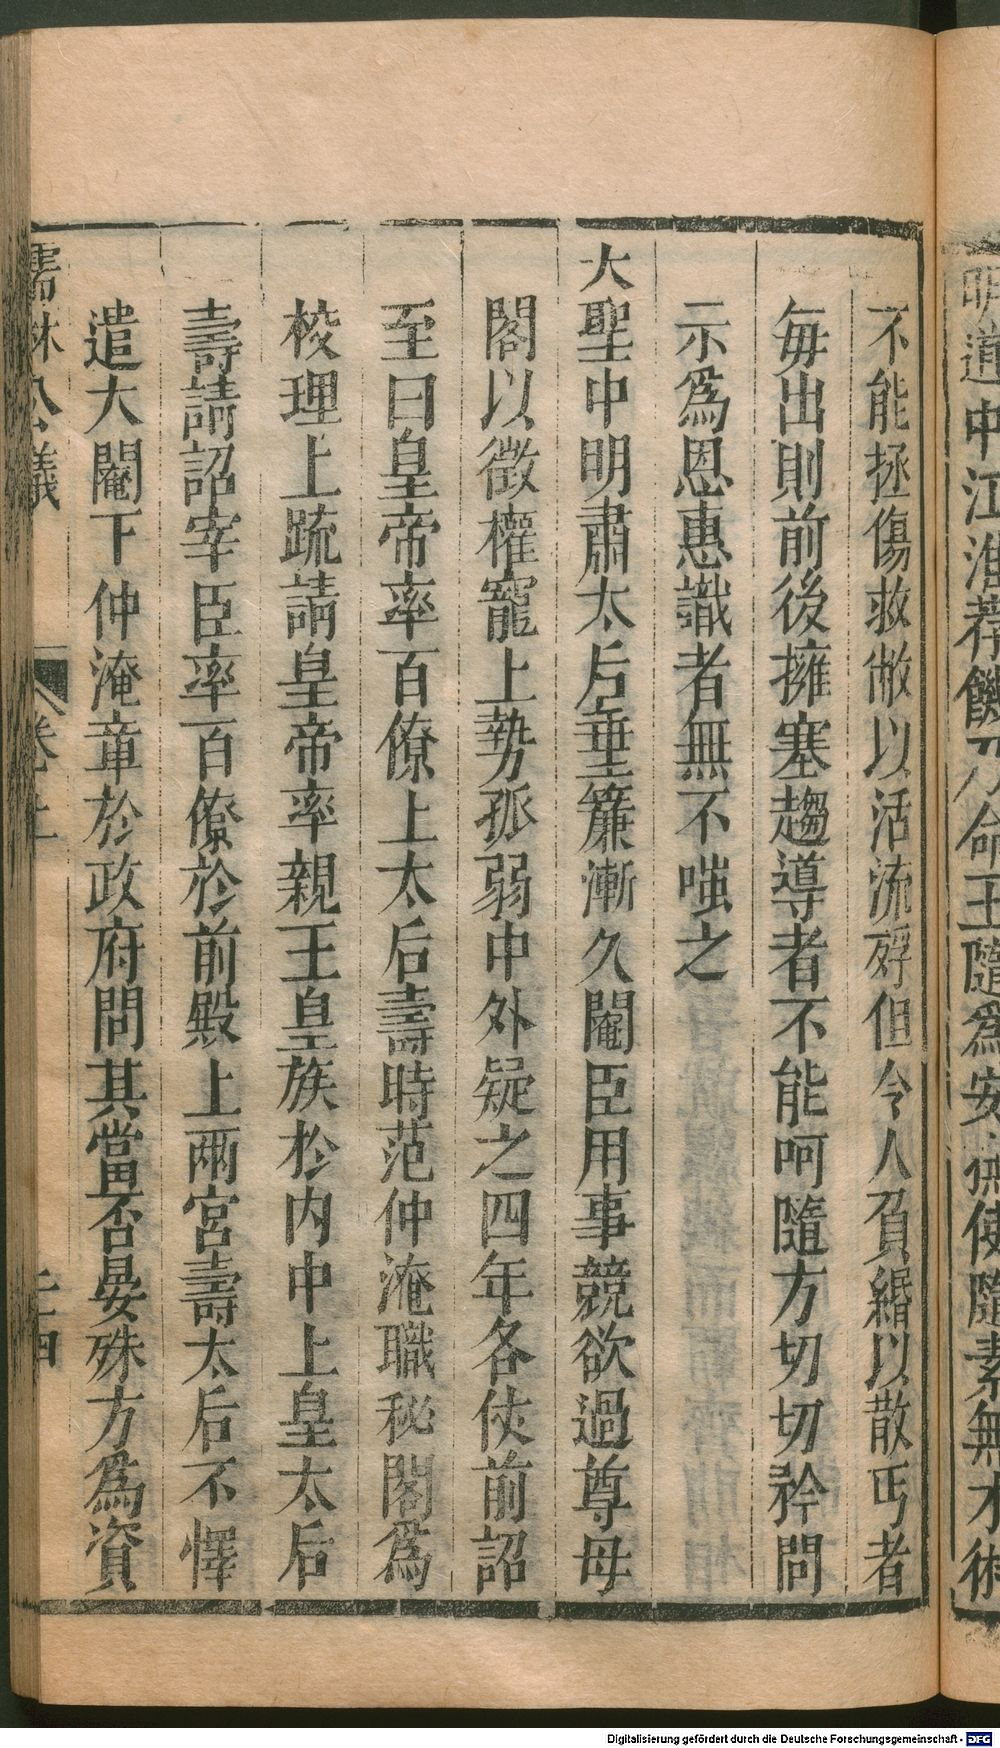 明道中江淮荐饑乃命王隨爲安撫使隨素無才術
不能拯傷救敝以活流殍但令人負緡以散丐者
每出則前後擁塞趨導者不能呵隨方切切矜問
示爲恩惠識者無不嗤之
大聖中明肅太后垂簾漸久閹臣用事競欲過尊母
閣以徼權寵上勢孤弱中外疑之四年各仗前詔
至日皇帝率百僚上太后壽時范仲淹職秘閣爲
校理上疏請皇帝率親王皇族於内中上皇太后
壽請詔宰臣率百僚於前殿上兩宮壽太后不懌
遣大閹下仲淹章於政府問其當否晏殊方爲資
儒林公議
卷上
二十四
Digitalisierung gefördert durch die Deutsche Forschungsgemeinschaft - DFG